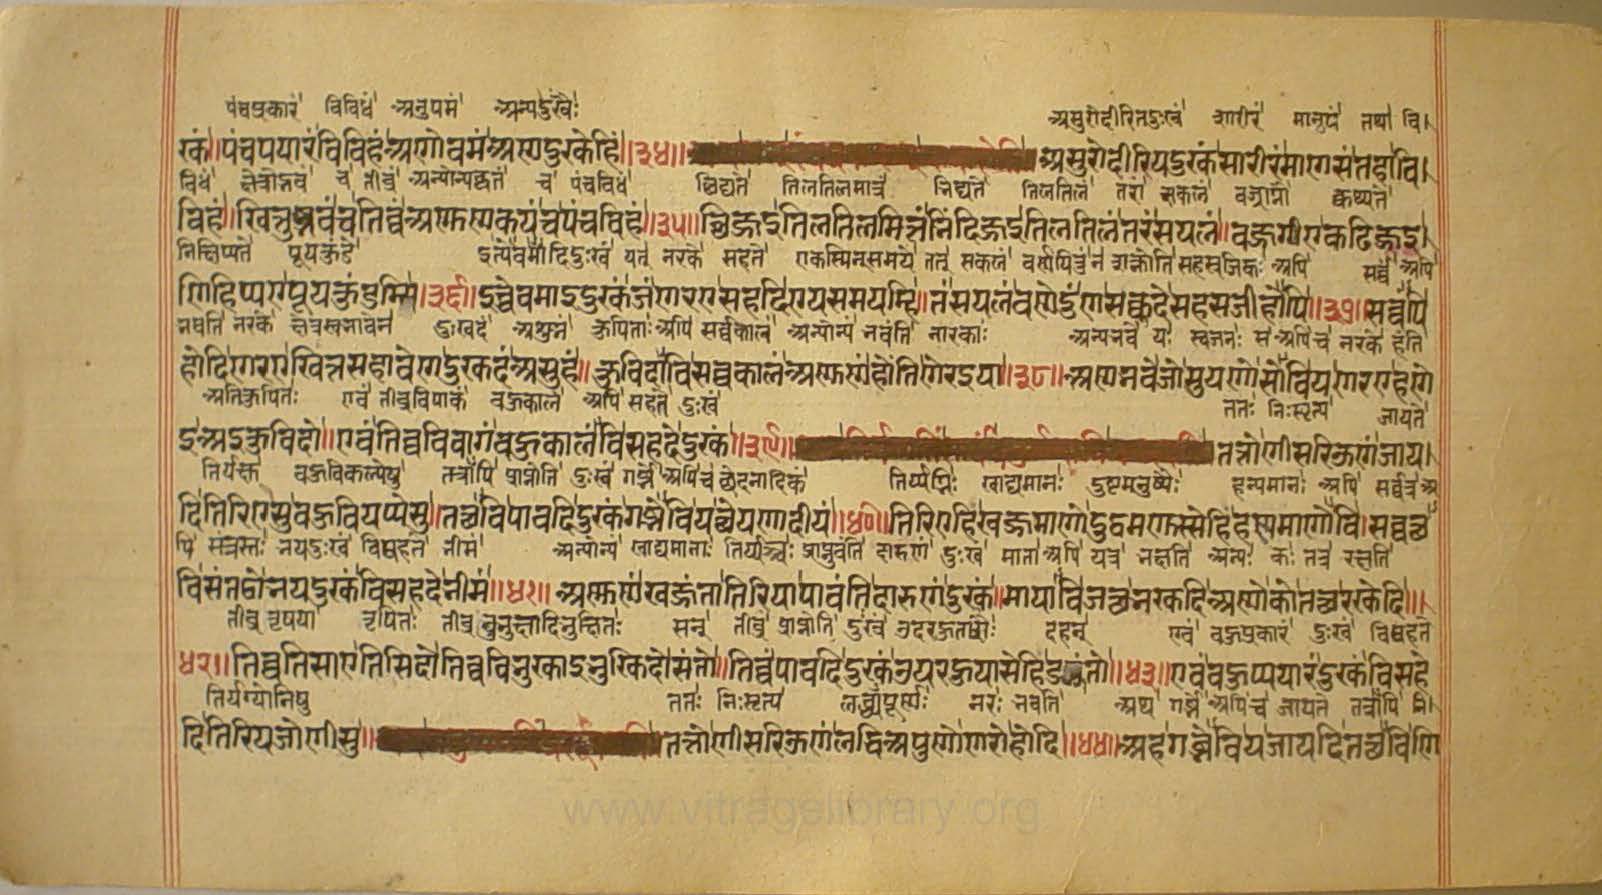 पंचप्रकारं विविधं अनुपमं अन्यदुःखैः असुरोदीरितदुःखं शारीरं मानुषं तथा वि
रकं॥पंचपयारंविविहंअणोवमंअण्णदुरकेहिं॥३४॥ असुरोदीरियदुरकंसारीरंमाणसंतहावि
विधं क्षेत्रोद्भवं च तीव्रं अन्योन्यकृतं च पंचविधं छिद्यते तिलतिलमात्रं भिद्यते तिलतिलं तरां सकलं वज्राग्नौ कथ्यते
विहं॥खित्तुब्भवंचतिव्वंअण्णोण्णकयंचपंचविहं॥३५॥छिज्जइतिलतिलमित्तंभिंदिज्जइतिलतिलंतरंसयलं॥वज्जग्गीएकढिज्जइ
निक्षिप्यते पूयकुंडे इत्येवमादिदुःखं यत् नरके सहते एकस्मिन्समये तत् सकलं वर्णयितुं न शक्नोति सहस्रजिह्वः अपि सर्वं अपि
णिहिप्पएपूयकुंडम्मि॥३६॥इच्चेवमाइदुरकंजंणरएसहदिएयसमयम्हि॥तंसयलंवण्णेदुंणसक्कदेसहसजीहोपि॥३७॥सव्वंपि
भवति नरके क्षेत्रस्वभावेन दुःखदं अशुभं कुपिताः अपि सर्वकालं अन्योन्यं भवंति नारकाः अन्यभवे यः स्वजनः सः अपि च नरके हंति
होदिणरएखित्तसहावेणदुरकदंअसुहं॥कुविदाविसव्वकालंअण्णोण्णंहोंतिणेरइया॥३८॥अण्णभवेजोसुयणोसोवियणरएहणे
अतिकुपितः एवं तीव्रविपाकं बहुकालं अपि सहते दुःखं ततः निःसृत्य जायते
इअइकुविदो॥एवंतिव्वविवागंबहुकालंविसहदेदुरकं॥३९॥ तत्तोणीसरिऊणंजाय
तिर्यक्षु बहुविकल्पेषु तत्रापि प्राप्नोति दुःखं गर्भे अपि च छेदनादिकं तिर्यग्भिः खाद्यमानः दुष्टमनुष्यैः हन्यमानः अपि सर्वत्र अ
दितिरिएसुबहुवियप्पेसु॥तत्थविपावदिदुरकंगब्भेवियछेयणादीयं॥४०॥तिरिएहिंखज्जमाणोदुट्ठमणुस्सेहिंहण्णमाणोवि।सव्वत्थ
पि संत्रस्तः भयदुःखं विषहते भीमं अन्योन्यं खाद्यमानाः तिर्यञ्चः प्राप्नुवंति दारुणं दुःखं माता अपि यत्र भक्षति अन्यः कः तत्र रक्षति
विसंतट्ठोभयदुरकंविसहदेभीमं॥४१॥अण्णोण्णंखज्जंतातिरियापावंतिदारुणंदुरकं॥मायाविजत्थभरकदिअण्णोकोतत्थररकेदि॥
तीव्रतृषया तृषितः तीव्रबुभुक्षादिभुक्षितः सन् तीव्रं प्राप्नोति दुःखं उदरहुताशैः दहन् एवं बहुप्रकारं दुःखं विषहते
४२॥तिव्वतिसाएतिसिदोतिव्वविभुरकाइभुरकिदोसंतो॥तिव्वंपावदिदुरकंउयरहुयासेहिंडज्झंतो॥४३॥एवंबहुप्पयारंदुरकंविसहे
तिर्यग्योनिषु ततः निःसृत्य लब्ध्यपूर्णः नरः भवति अथ गर्भे अपि च जायते तत्रापि नि
दितिरियजोणीसु॥ तत्तोणीसरिऊणंलद्धिअपुणोणरोहोदि॥४४॥अहगब्भेवियजायदितत्थविणि
www.vitragelibrary.org